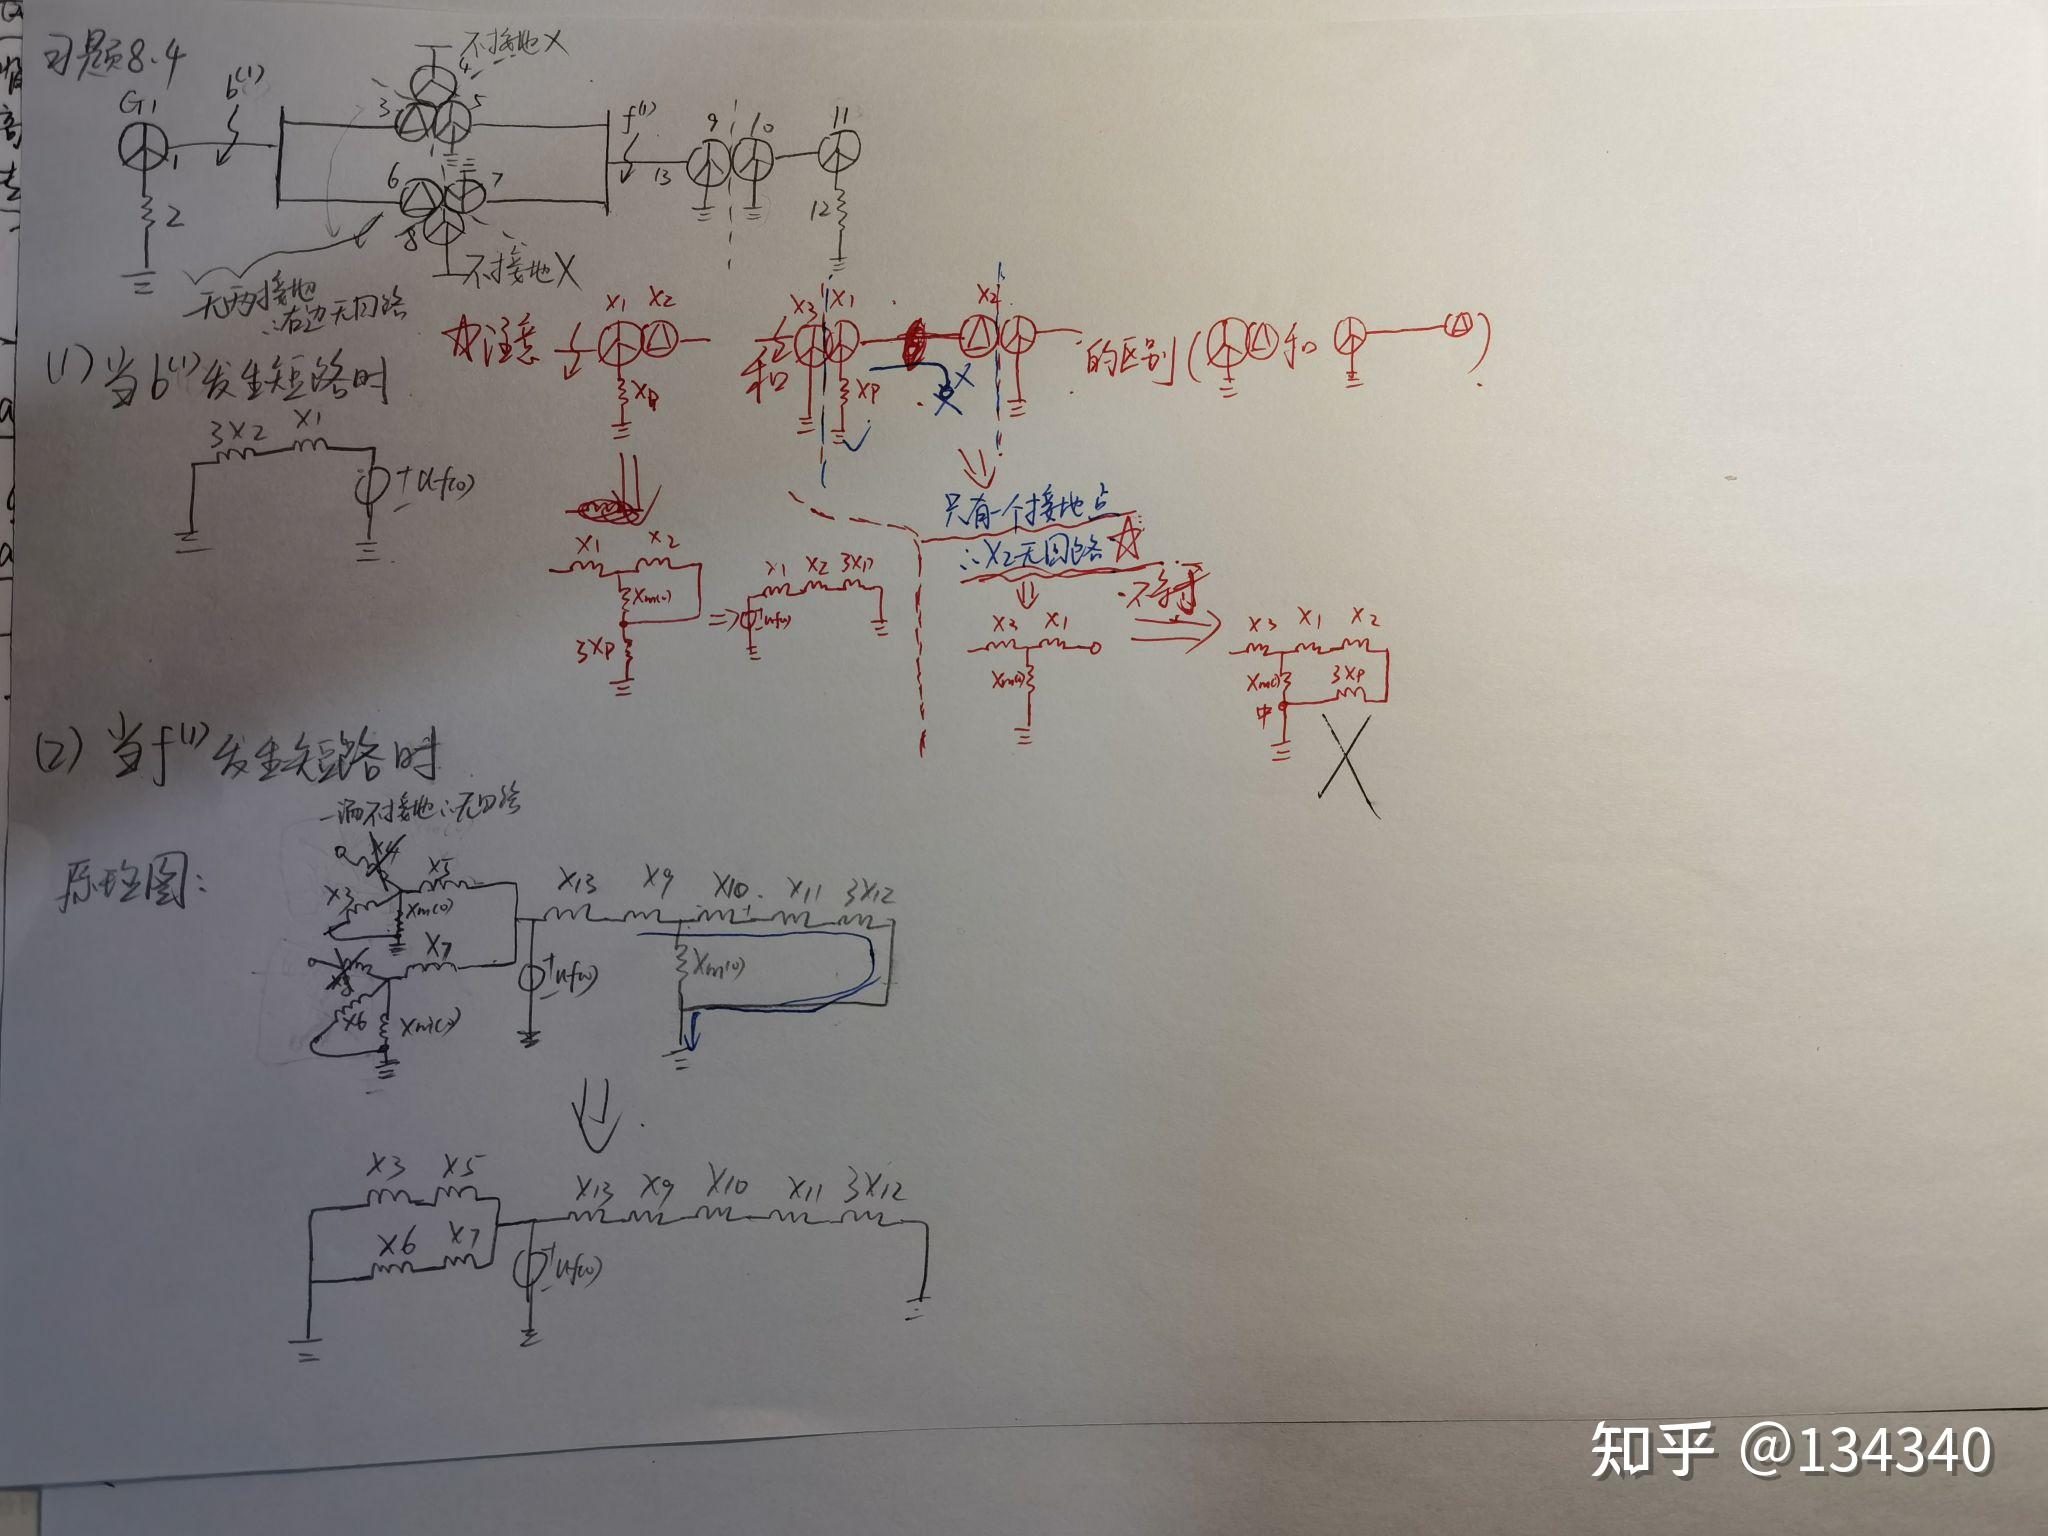 习题8.4
不接地X
G1
b(1)
1
2
3
4
5
6
7
8
不接地X
f(1)
13
9
10
11
12
无两接地
∴右边无回路
(1)当b(1)发生短路时
3X2 X1
+
-
Uf(0)
☆注意
X1 X2
Xp
和
X3 X1
Xp
X
X2
的区别(
和
)
X1 X2
Xm(0)
3Xp
X1 X2 3Xp
Uf(0)
只有一个接地点
∴X2无回路☆
不等于
X3 X1
Xm(0)
X3 X1 X2
Xm(0)
3Xp
中
(2)当f(1)发生短路时
一洒不接地∴无回路
原理图:
X4
X3
X5
Xm(0)
X7
X8
X6
Xm(0)
+
-
Uf(0)
X13 X9 X10 X11 3X12
Xm(0)
X3 X5
X6 X7
X13 X9 X10 X11 3X12
+
-
Uf(0)
知乎 @134340